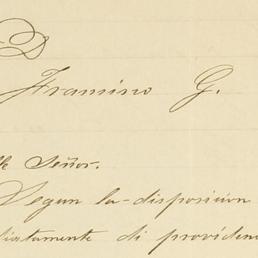 D
Framino G.
Señor.
Segun la disposicion
diatamente di providen